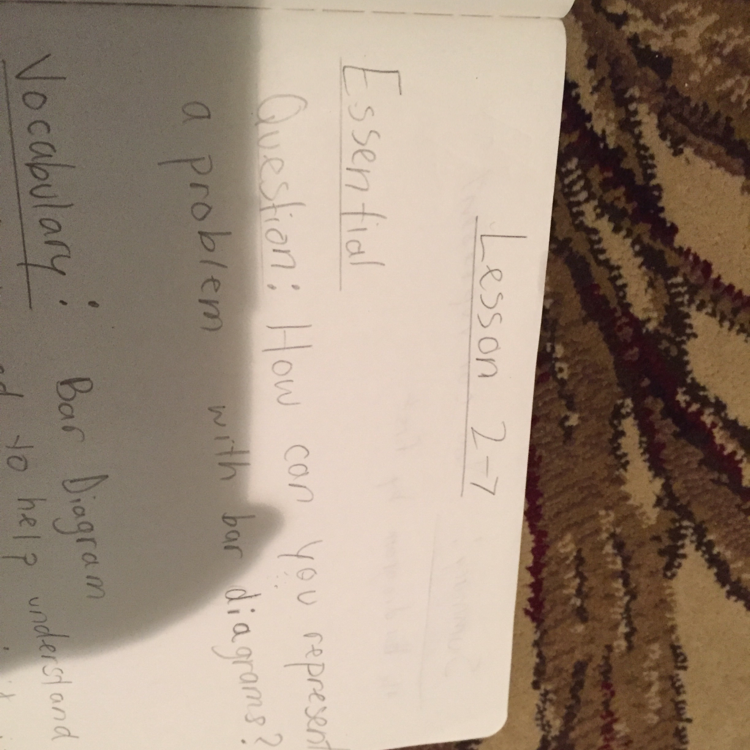 Lesson 2-7
Essential
Question: How can you represent
a problem with bar diagrams?
Vocabulary: Bar Diagram
to help understand